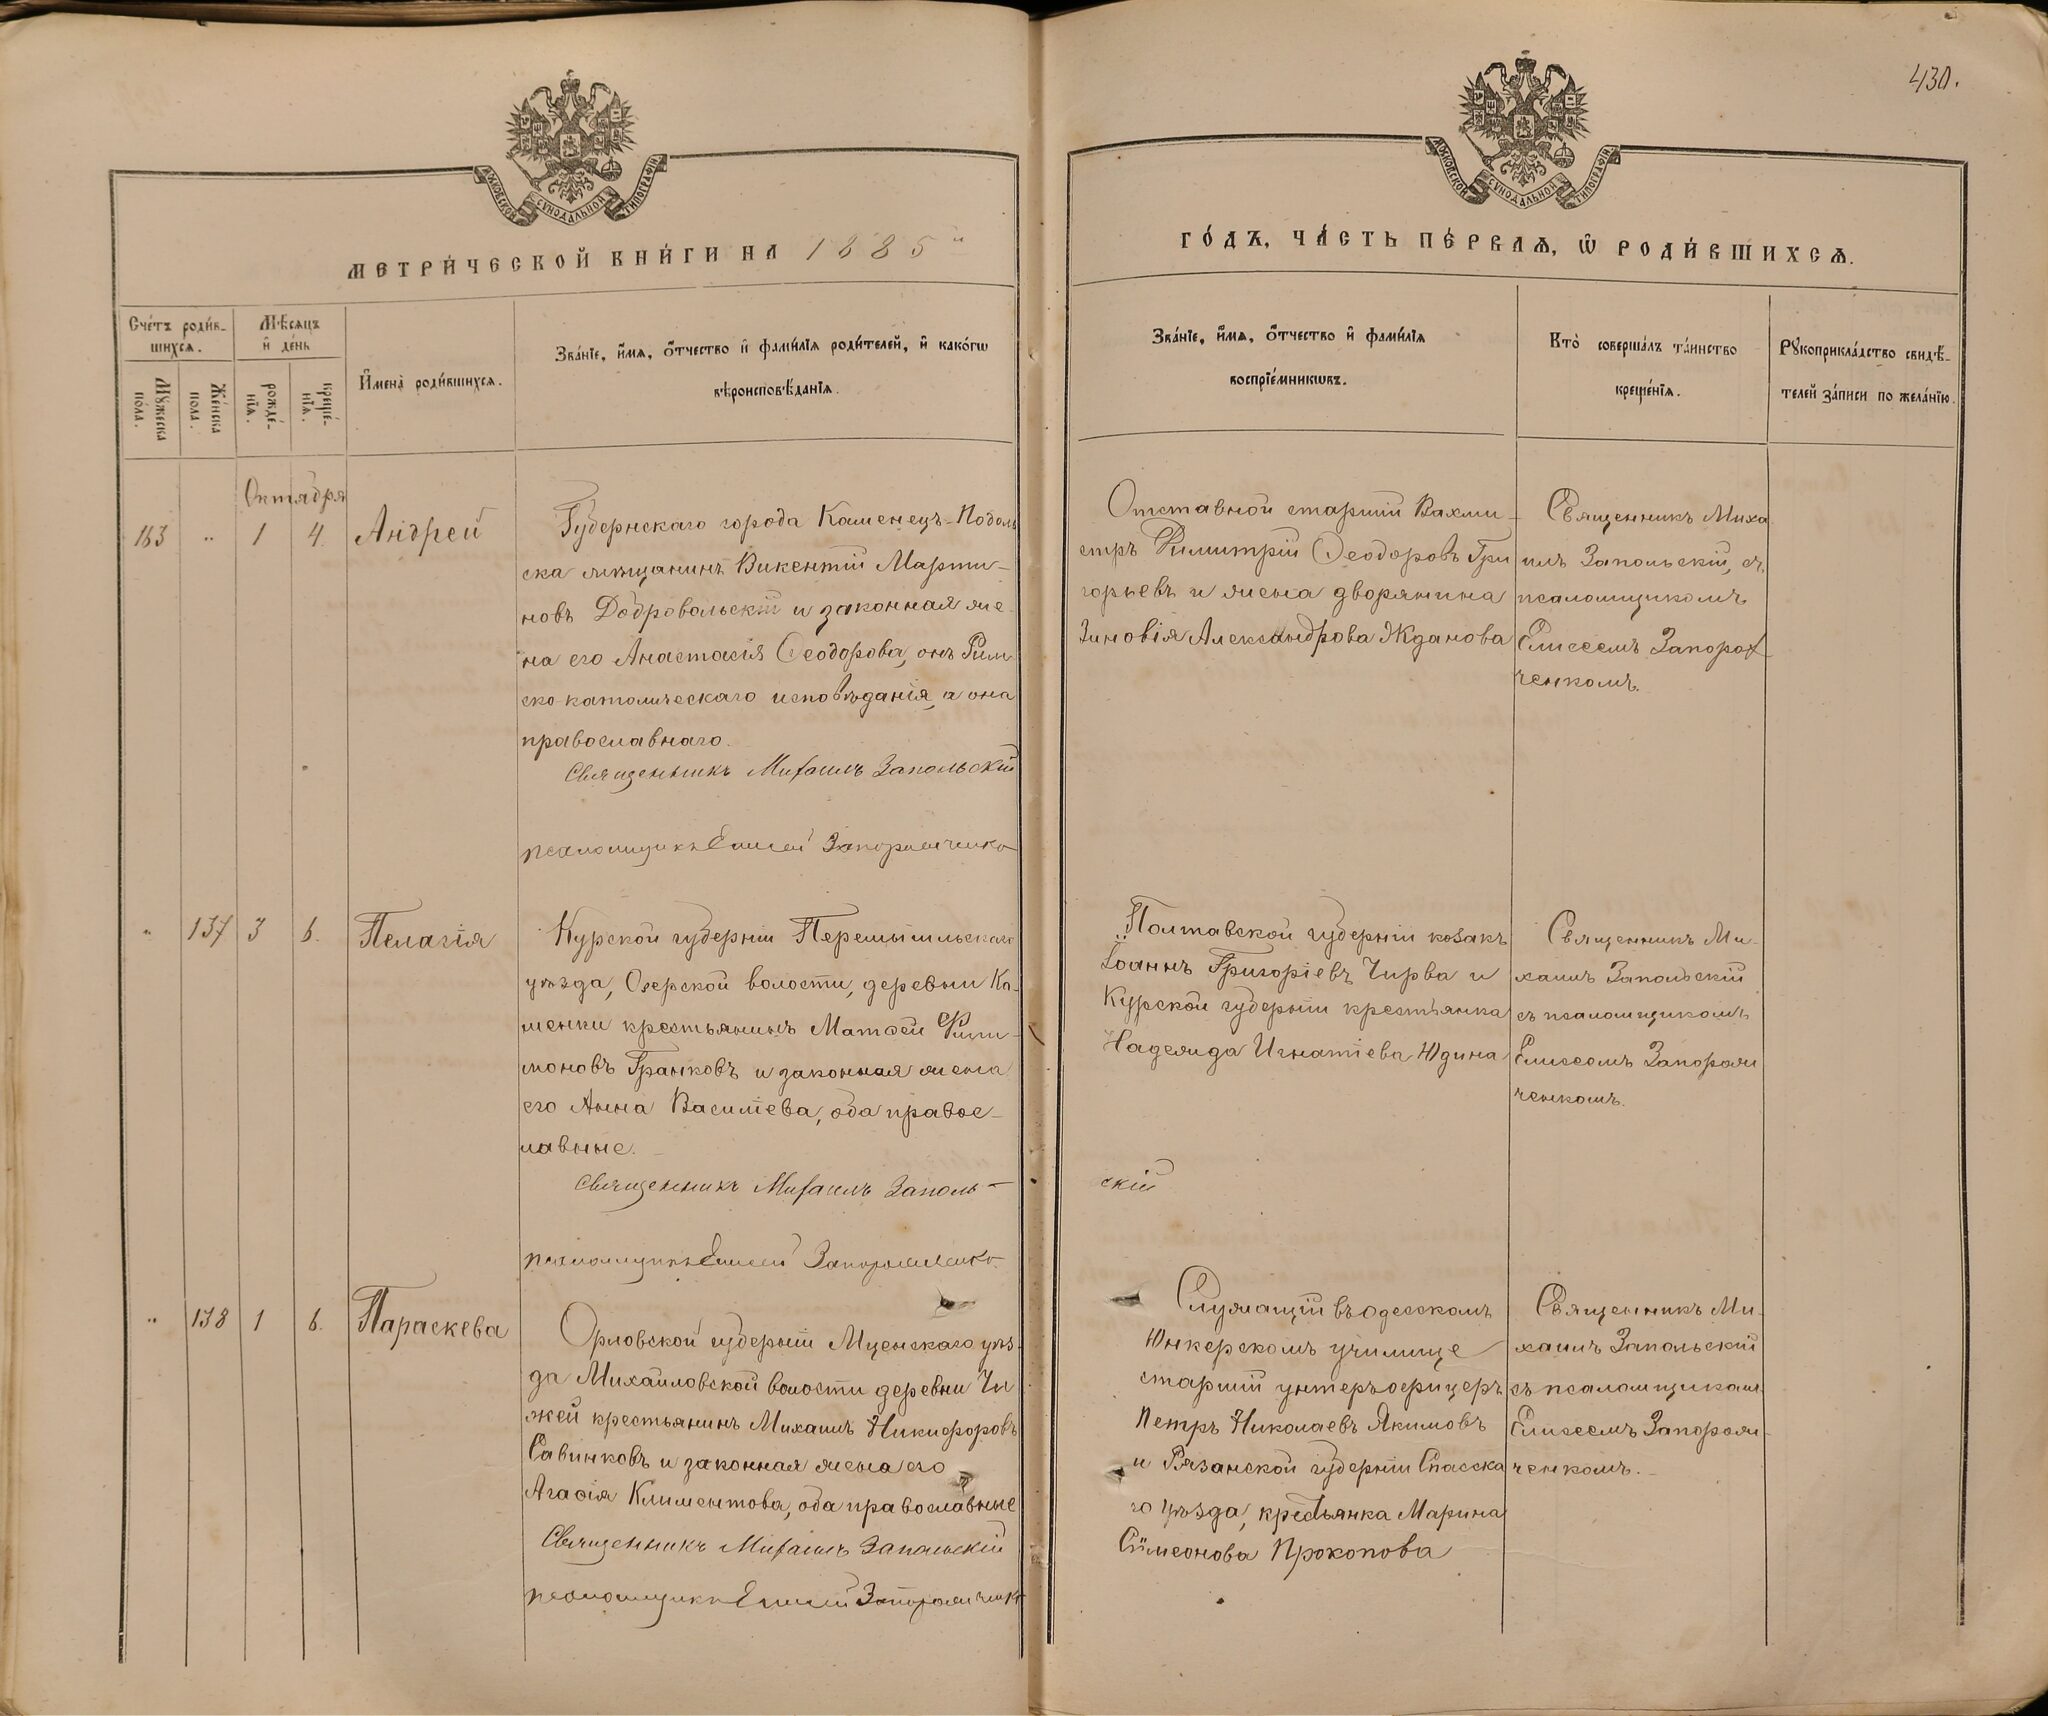 430.
МОСКОВСКОЙ СѴНОДАЛЬНОЙ ТИПОГРАФІИ
МОСКОВСКОЙ СѴНОДАЛЬНОЙ ТИПОГРАФІИ
МЕТРИ́ЧЕСКОЙ КНИ́ГИ НА 1885"
ГО́ДЪ, ЧА́СТЬ ПЕ́РВАѦ, Ѡ РОДИ́ВШИХСѦ.
Сче́тъ роди́в-
шихсѧ.
Мꙋ́жеска по́ла.
Же́нска пола.
Мѣ́сѧцъ
и҆ де́нь
рожде́-
нїѧ.
креще́-
нїѧ.
И҆мена̀ роди́вшихсѧ.
Зва́нїе, и҆́мѧ, ѻ҆́тчество и҆ фами́лїѧ роди́телей, и҆ како́гѡ
вѣроисповѣ́данїѧ.
Зва́нїе, и҆́мѧ, ѻ҆́тчество и҆ фами́лїѧ
воспрїе́мникѡвъ.
Кто̀ соверша́лъ та́инство
креще́нїѧ.
Рꙋкоприкла́дство свидѣ́-
телей за́писи по жела́нїю.
Октября
163 " 1 4. Андрей
Губернскаго города Каменецъ-Подоль
ска мѣщанинъ Викентій Марти-
новъ Добровольскій и законная же-
на его Анастасія Ѳеодорова, онъ Рим
ско-католическаго исповѣданія, а она
православнаго.
Священникъ Михаилъ Запольскій
псаломщикъ Елисей Запорожченко
Отставной старшій Вахми-
стръ Димитрій Ѳеодоровъ Гри
горьевъ и жена дворянина
Зиновія Александрова Жданова
Священникъ Миха
илъ Запольскій, съ
псаломщикомъ
Елисеемъ Запорож-
ченкомъ.
" 137 3 6. Пелагія
Курской губерніи Перемышльскаго
уѣзда, Озерской волости, деревни Ка-
менки крестьянинъ Матѳей Фили-
моновъ Гранковъ и законная жена
его Анна Василіева, оба правос-
лавные.
Священникъ Михаилъ Заполь-
скій
псаломщикъ Елисей Запорожченко.
Полтавской губерніи козакъ
Іоаннъ Григоріевъ Чирва и
Курской губерніи крестьянка
Надежда Игнатіева Юдина
Священникъ Ми-
хаилъ Запольскій
съ псаломщикомъ
Елисеемъ Запорож
ченкомъ.
" 138 1 6. Параскева
Орловской губерніи Мценскаго уѣз-
да Михайловской волости деревни Чи
жей крестьянинъ Михаилъ Никифоровъ
Савинковъ и законная жена его
Агафія Климентова, оба православные
Священникъ Михаилъ Запольскій
псаломщикъ Елисей Запорожченко
Служащій въ Одесскомъ
Юнкерскомъ училище
старшій унтеръ-офицеръ
Петръ Николаевъ Якимовъ
и Рязанской губерніи Спасска
го уѣзда, крестьянка Марина
Симеонова Прокопова
Священникъ Ми-
хаилъ Запольскій
съ псаломщикомъ
Елисеемъ Запорож-
ченкомъ.